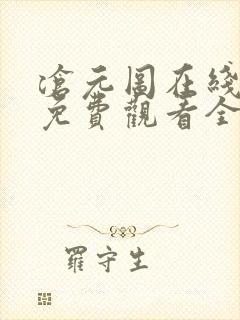 滄元图在线
免費觀看全
羅守生